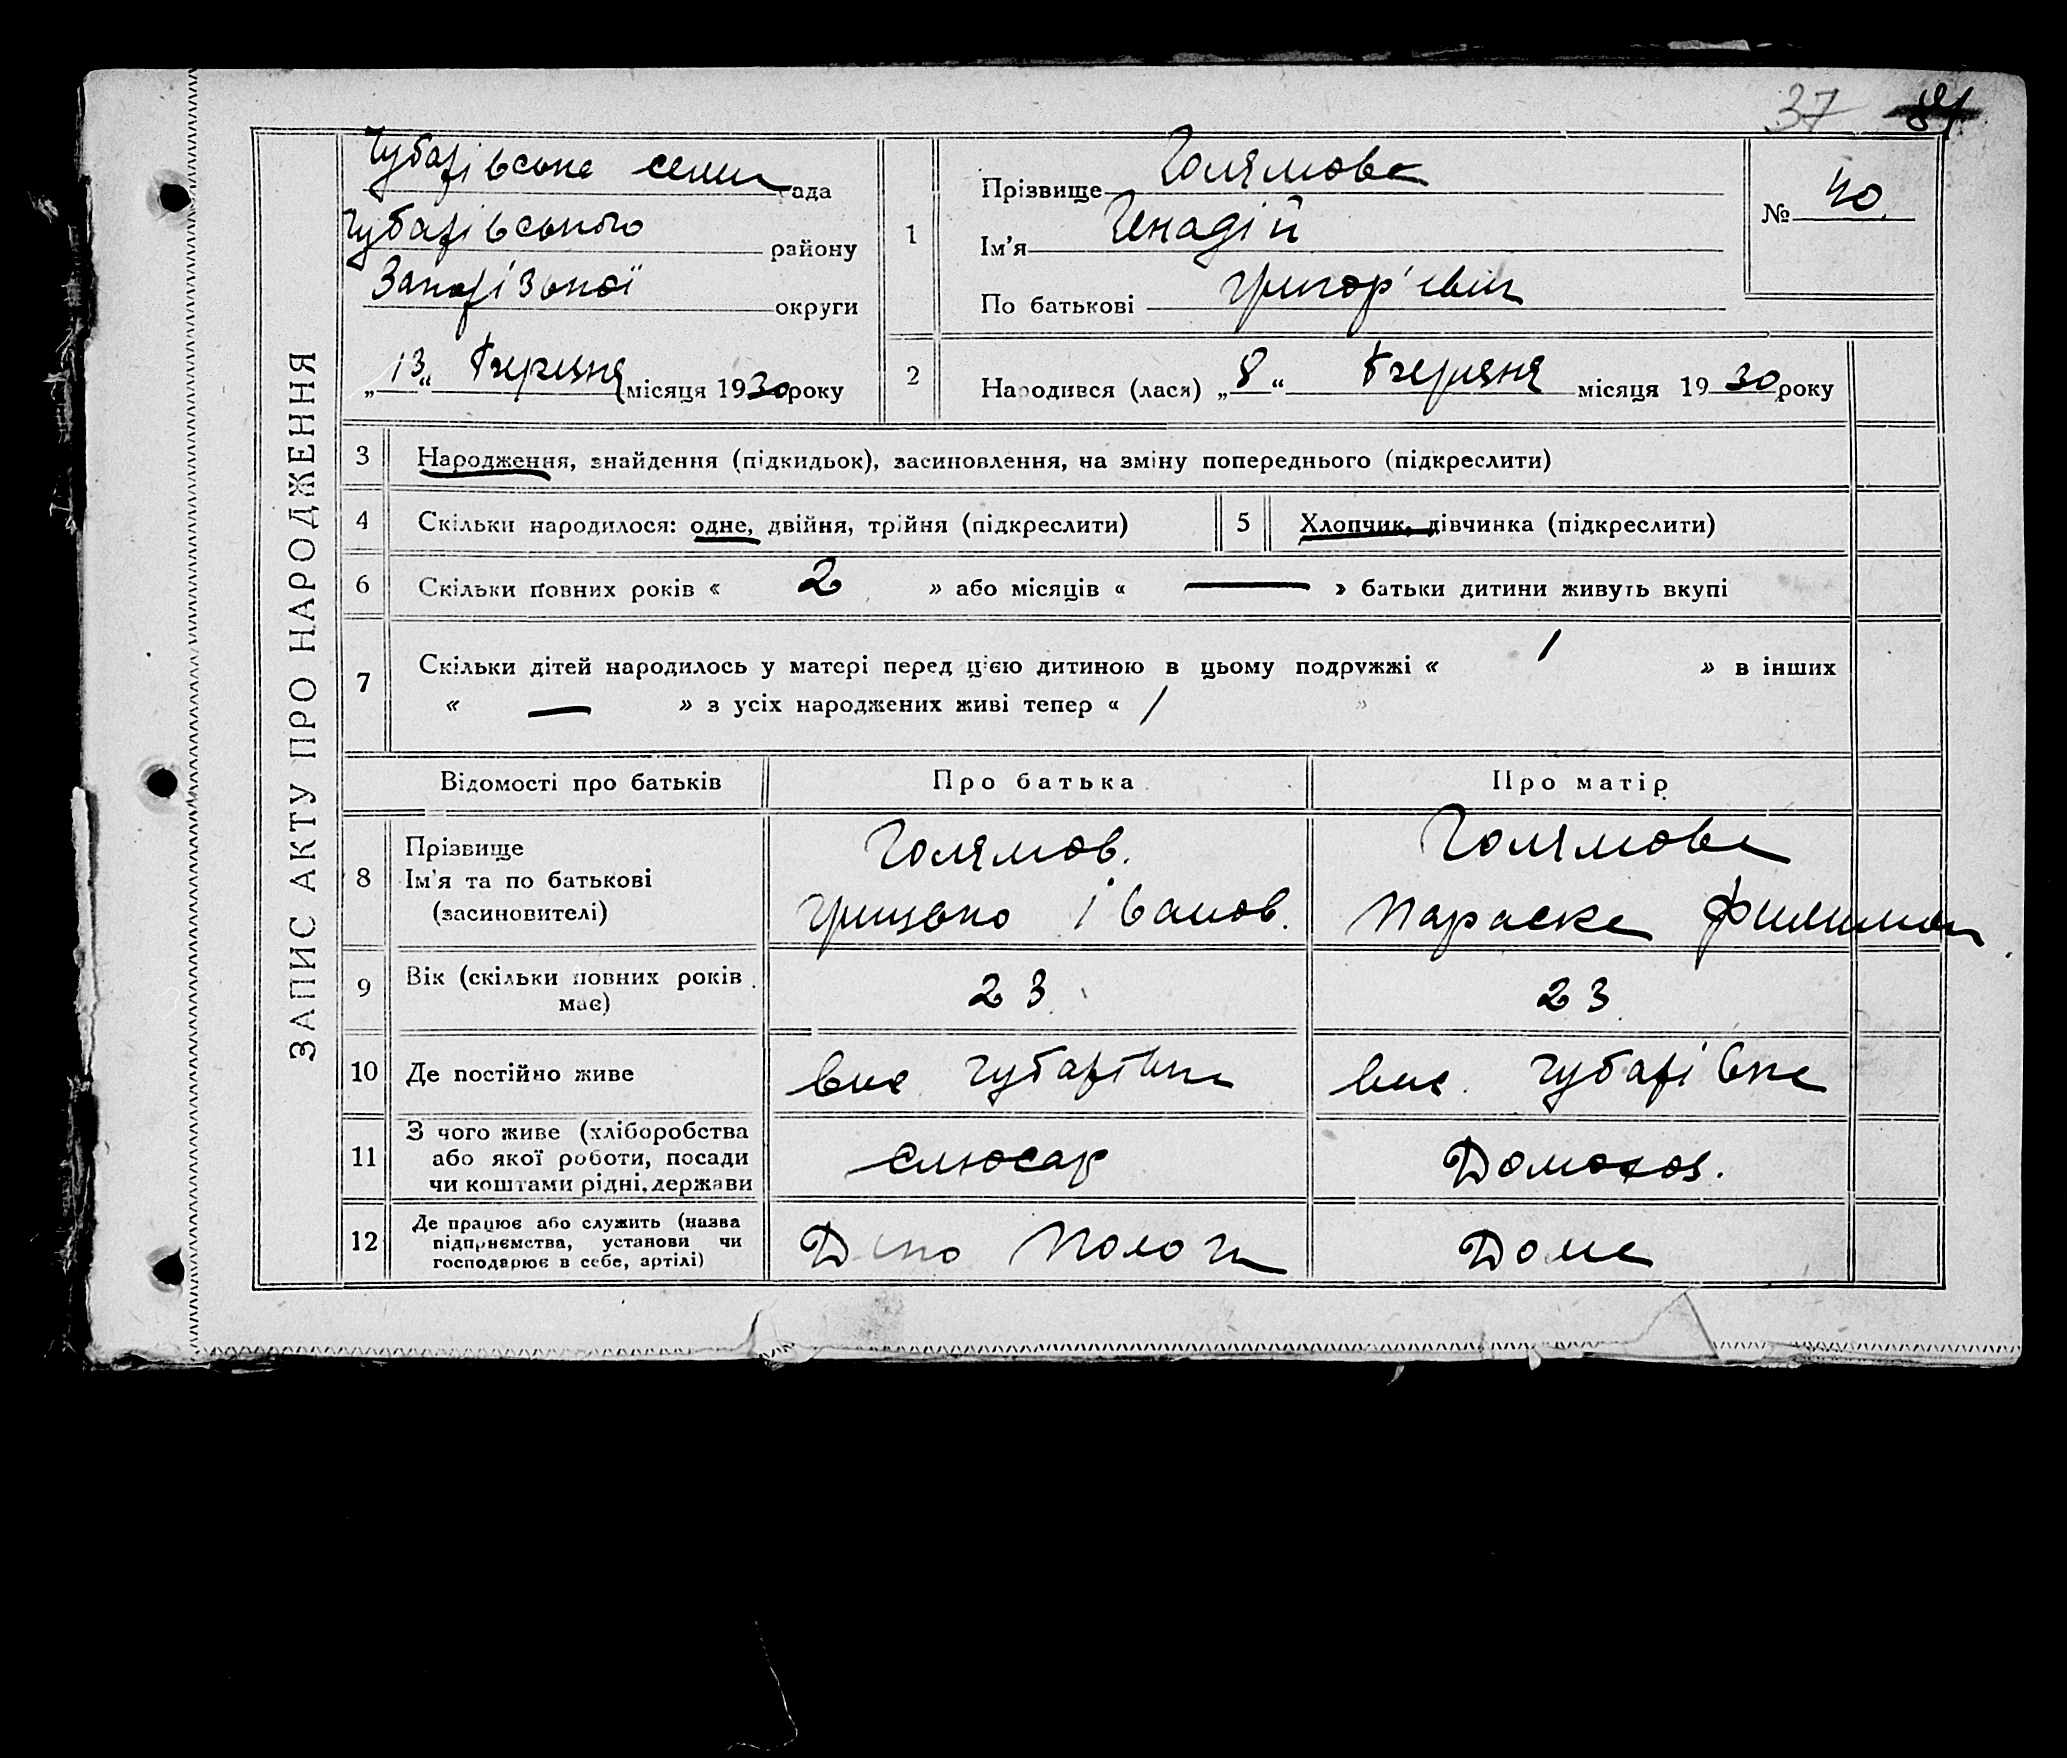 37 81
ЗАПИС АКТУ ПРО НАРОДЖЕННЯ
Чубарівська селищ рада
Чубарівського району
Запорізької округи
„13“ Червня місяця 1930 року
1
Прізвище Голямова
Ім'я Генадій
По батькові Григор'евич
№ 40.
2 Народився (лася) „8“ Червня місяця 1930 року
3 Народження, знайдення (підкидьок), засиновлення, на зміну попереднього (підкреслити)
4 Скільки народилося: одне, двійня, трійня (підкреслити)
5 Хлопчик, дівчинка (підкреслити)
6 Скільки повних років « 2 » або місяців « — » батьки дитини живуть вкупі
7 Скільки дітей народилось у матері перед цією дитиною в цьому подружжі « 1 » в інших
« — » з усіх народжених живі тепер « 1 »
Відомості про батьків Про батька Про матір
8 Прізвище
Ім'я та по батькові
(засиновителі)
Голямов.
Грицько Іванов.
Голямова
Параска Филимон
9 Вік (скільки повних років
має)
23
23
10 Де постійно живе
Чубарівка
Чубарівка
11 З чого живе (хліборобства
або якої роботи, посади
чи коштами рідні, держави
слюсар
Домогоз.
12 Де працює або служить (назва
підприємства, установи чи
господарює в себе, артілі)
Депо Пологи
Дома